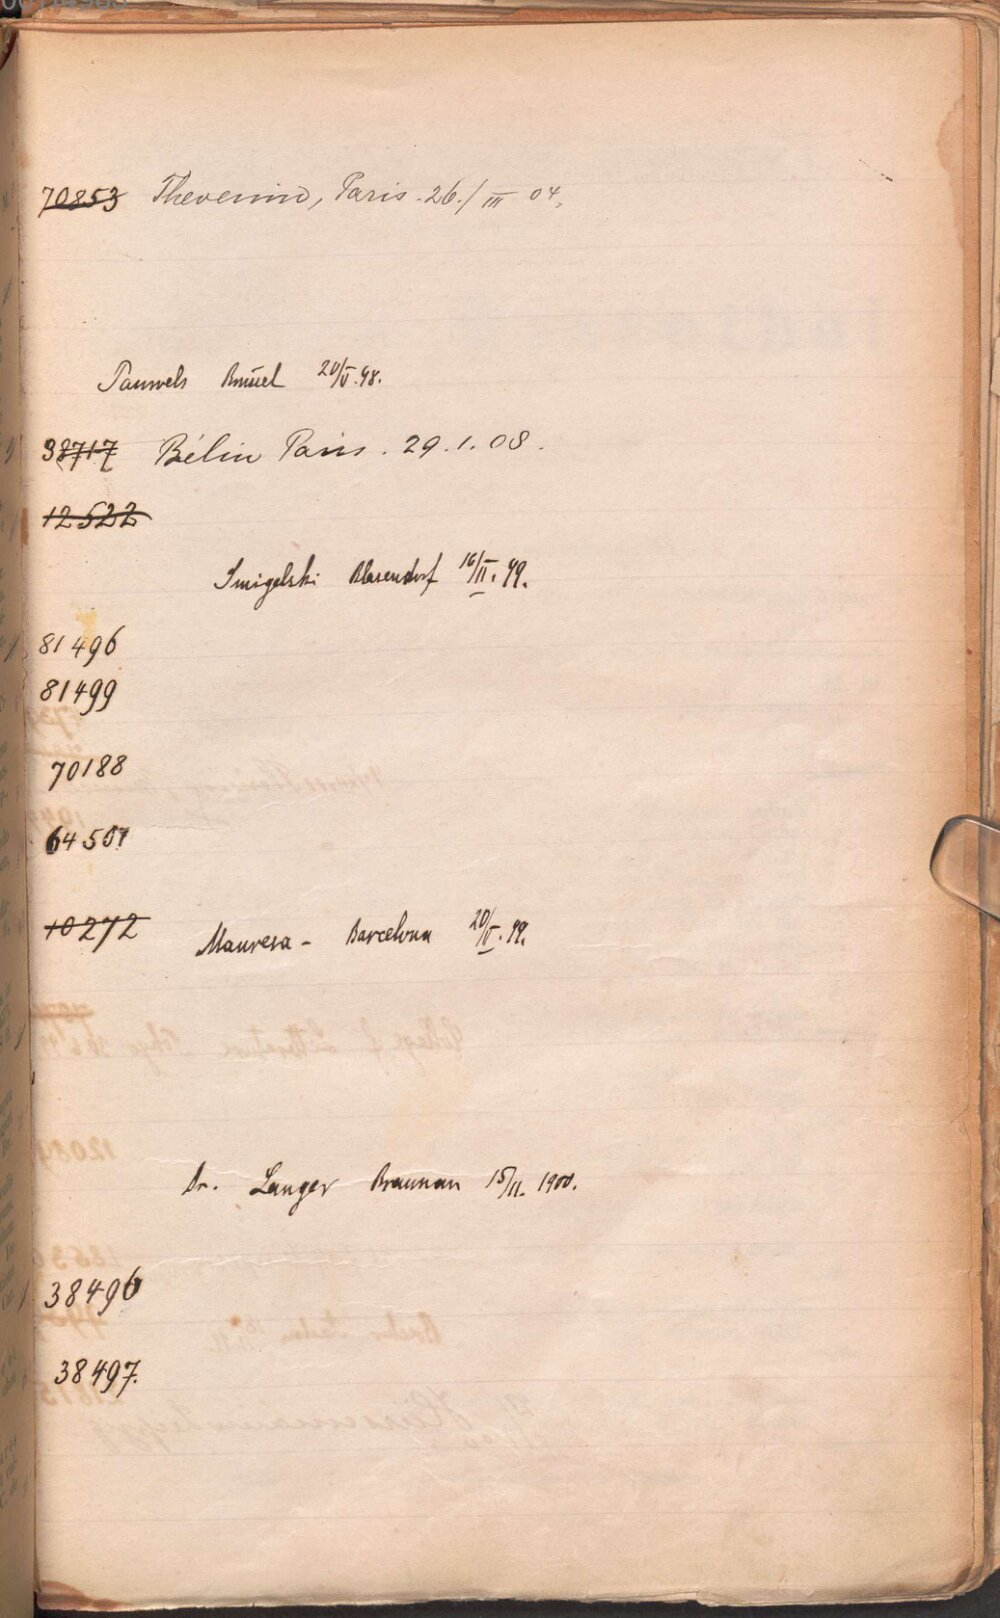 70853 Thevenin, Paris. 26./III 04.
Pauwels Brüssel 20/V.98.
38717 Bélin Paris. 29.1.08.
12522
Smigelski Blasendorf 16/II.99.
81496
81499
70188
64507
10272 Manresa - Barcelona 20/V.99.
Dr. Langer Braunau 15/II. 1900.
38496
38497.